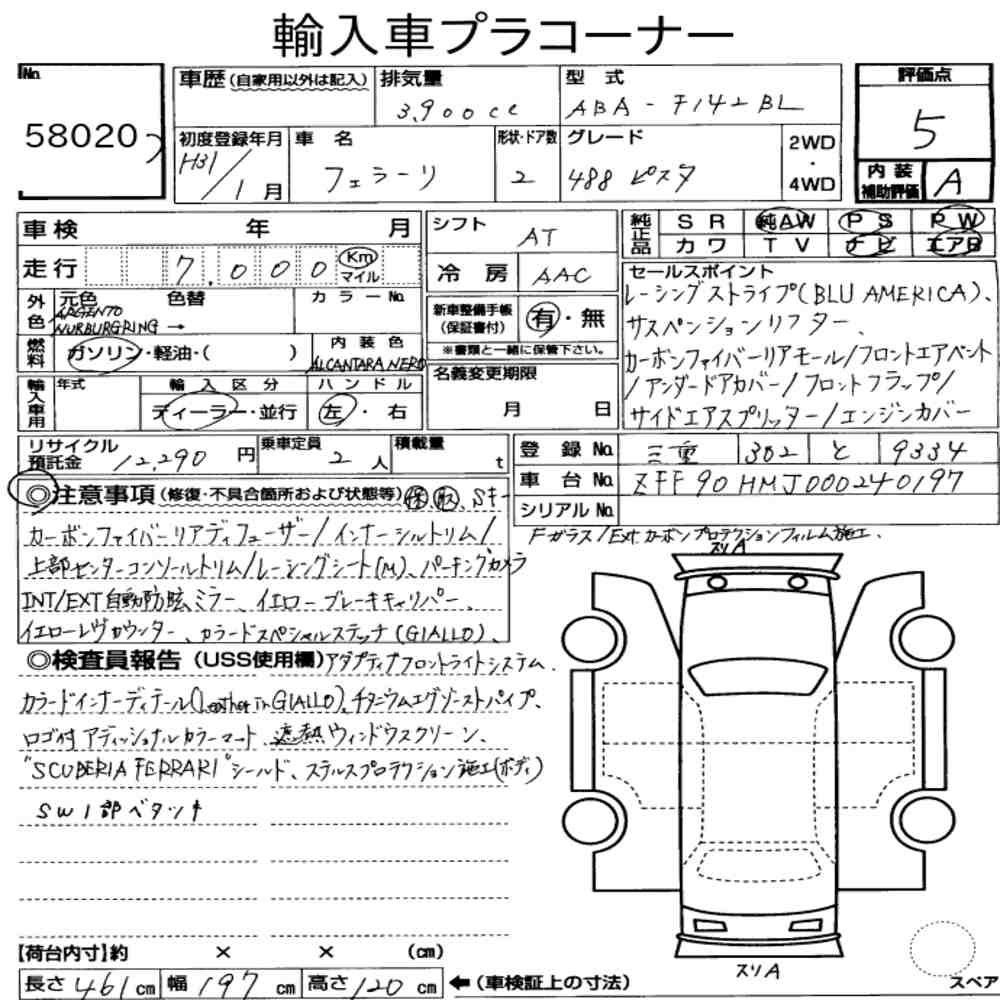 輸入車プラコーナー
No.
58020
車歴 (自家用以外は記入)
排気量
3,900cc
型式
ABA-F142BL
評価点
5
内装補助評価
A
初度登録年月
H31/1月
車名
フェラーリ
形状・ドア数
2
グレード
488 ピスタ
2WD・4WD
車検 年 月
走行 7,000 Km マイル
シフト
AT
冷房 AAC
純正品 SR 純AW PS PW
カワ TV ナビ エアB
外色 元色 色替 カラーNo.
ARGENTO
NURBURGRING →
燃料 ガソリン・軽油・( )
内装色
ALCANTARA NERO
新車整備手帳(保証書付) 有・無
※書類と一緒に保管下さい。
名義変更期限
月 日
セールスポイント
レーシングストライプ(BLU AMERICA)、
サスペンションリフター、
カーボンファイバーリアモール/フロントエアベント
/アンダードアカバー/フロントフラップ/
サイドエアスプリッター/エンジンカバー
輸入車用 年式 輸入区分 ハンドル
ディーラー・並行 左・右
リサイクル預託金 12,290円
乗車定員 2人
積載量 t
登録No. 三重 302 と 9334
車台No. ZFF90HMJ000240197
シリアルNo.
◎注意事項 (修復・不具合箇所および状態等) 保 取、Sキー
カーボンファイバーリアディフューザー/インナーシルトリム/
上部センターコンソールトリム/レーシングシート(M)、パーキングカメラ
INT/EXT自動防眩ミラー、イエローブレーキキャリパー、
イエローレヴカウンター、カラードスペシャルステッチ(GIALLO)、
Fガラス/Ext カーボンプロテクションフィルム施工.
スリA
◎検査員報告 (USS使用欄) アダプティブフロントライトシステム.
カラードインナーディテール(Leather in GIALLO)、チタニウムエグゾーストパイプ、
ロゴ付アディッショナルカラーマート、遮熱ウィンドウスクリーン、
"SCUDERIA FERRARI"シールド、ステルスプロテクション施工(ボディ)
SW1部ベタツキ
【荷台内寸】約 × × (cm)
長さ 461cm 幅 197cm 高さ 120cm ←(車検証上の寸法)
スリA
スペア